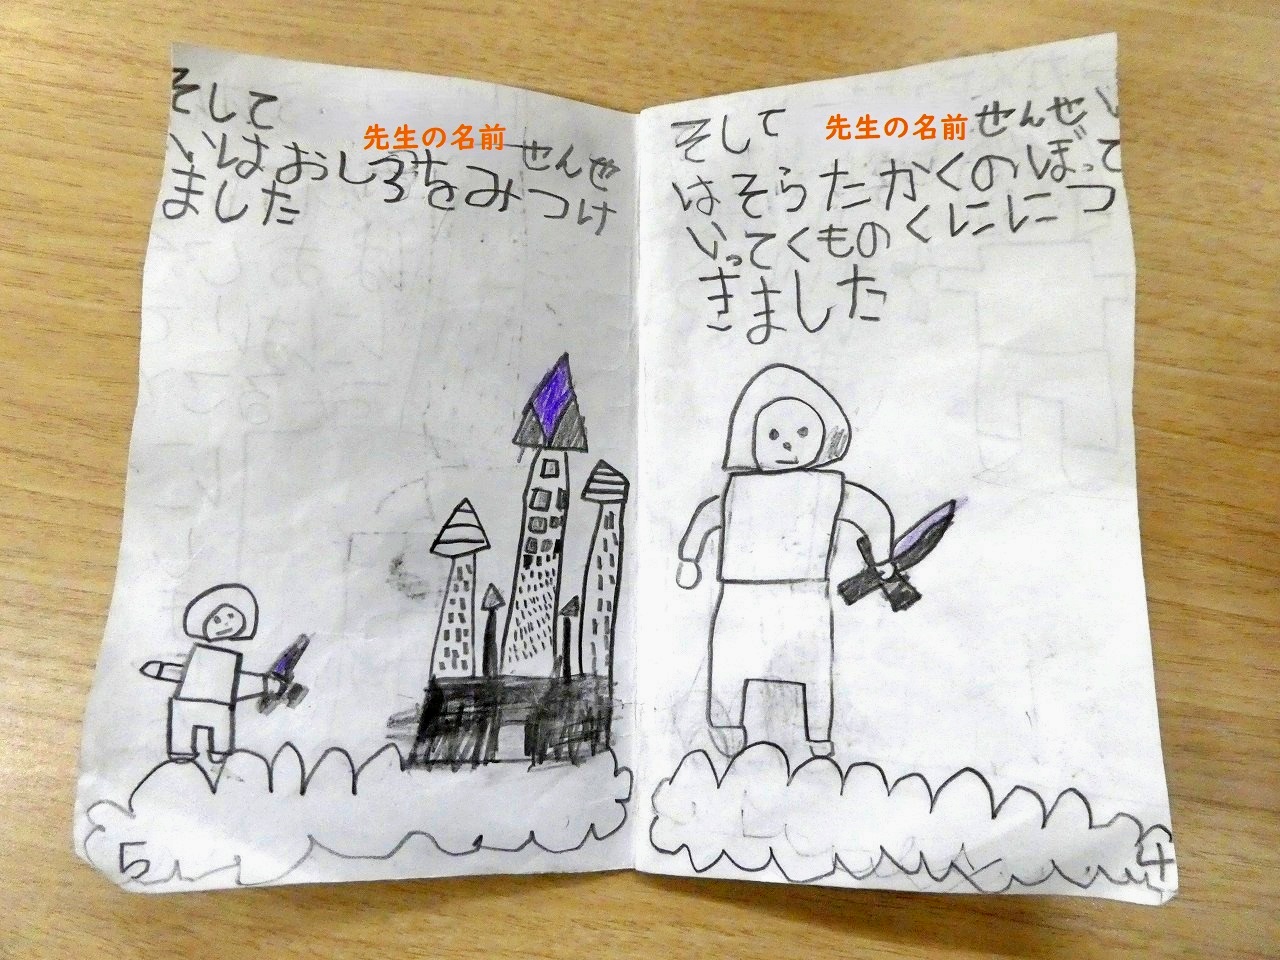 そして 先生の名前 せんせい
はそらたかくのぼって
いってくものくににつ
きました
4
そして 先生の名前 せんせ
いはおしろをみつけ
ました
5